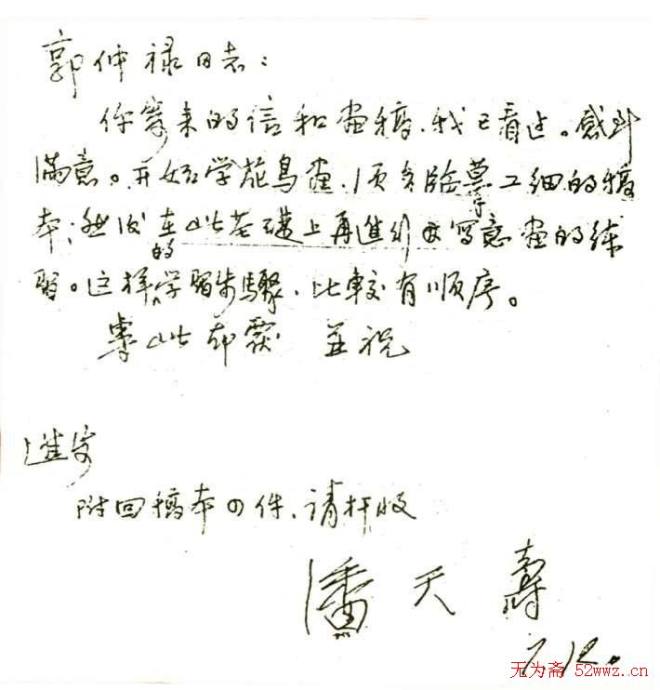 郭仲禄同志：
你寄来的信和画稿，我已看过。感到
满意。开始学花鸟画，须多临摹工细的稿
本；然后在此基础上再进行写意画的练
习。这样的学习步骤，比较有顺序。
专此却覆 并祝
进步
附回稿本四件，请检收
潘天寿
7.12.
无为斋 52wwz.cn